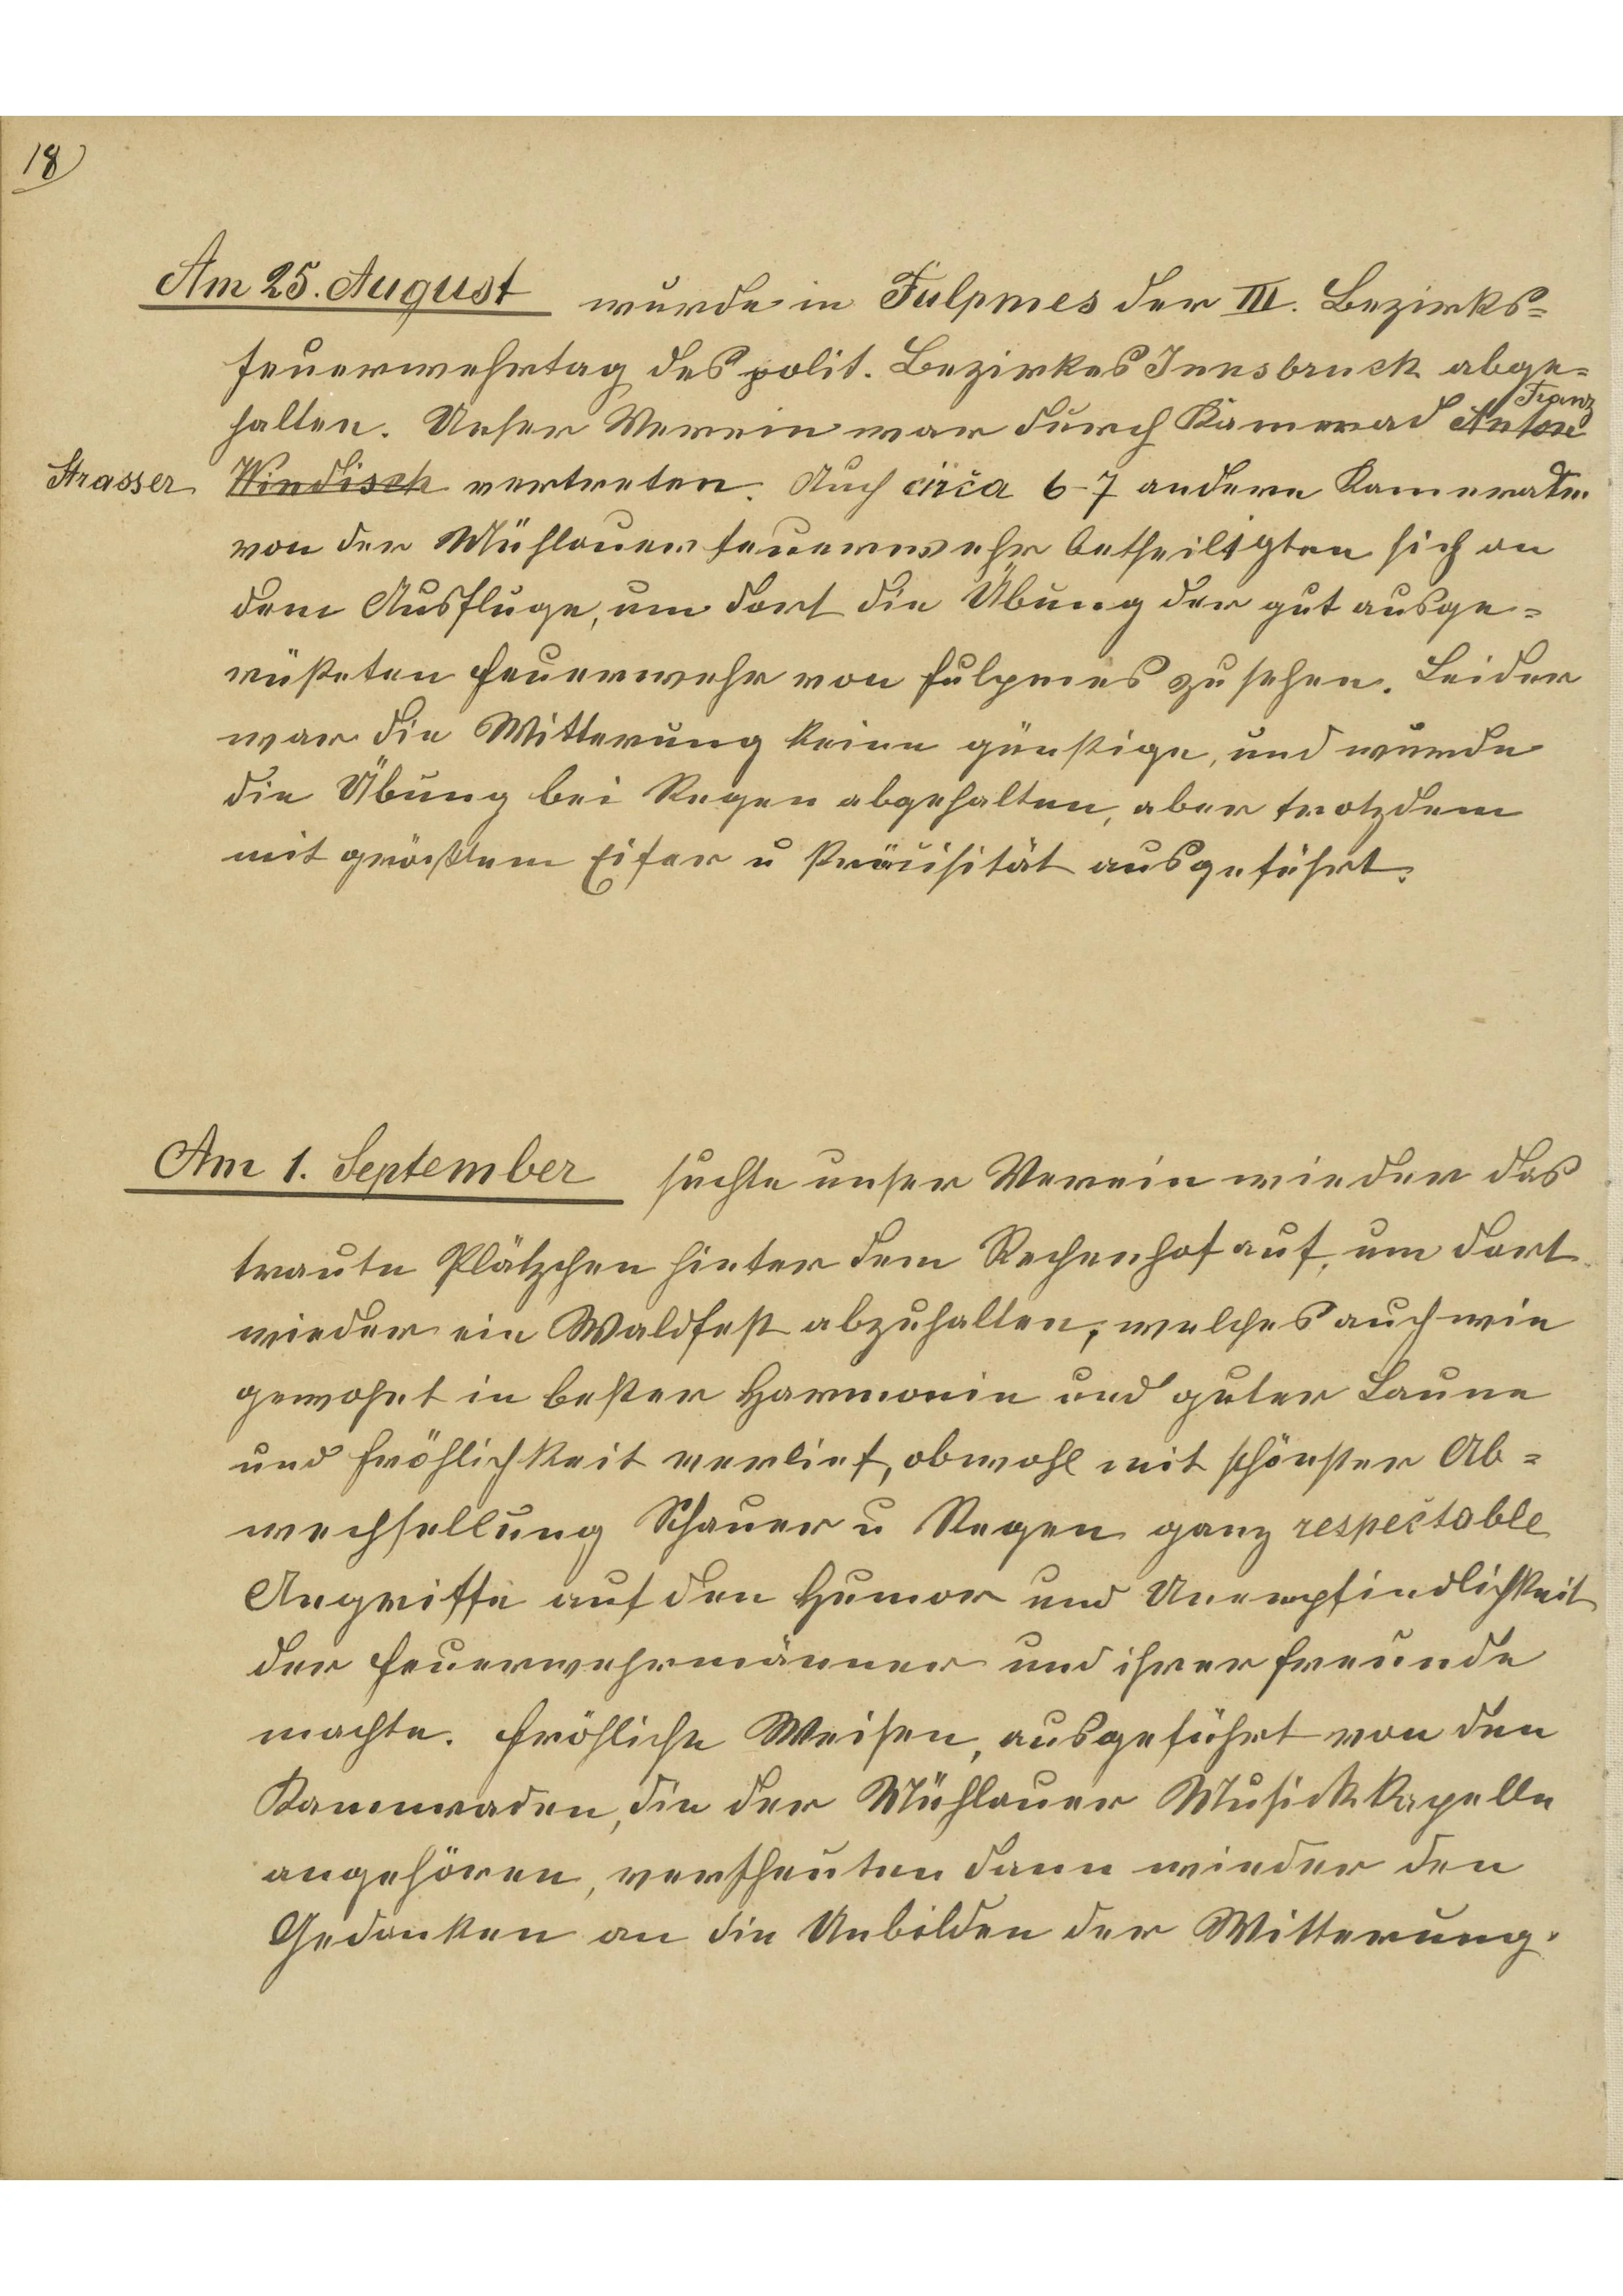 18
Am 25. August wurde in Fulpmes der III. Bezirks=
feuerwehrtag des polit. Bezirkes Innsbruck abge=
Franz
halten. Unser Verein war durch Kamerad Anton
Strasser Windisch vertreten. Auch circa 6-7 andere Kameraden
von der Mühlauer feuerwehr betheiligten sich an
dem Ausfluge, um dort die Übung der gut ausge=
rüsteten Feuerwehr von Fulpmes zu sehen. Leider
war die Witterung keine günstige, und wurde
die Übung bei Regen abgehalten, aber trotzdem
mit größtem Eifer u Präcisität ausgeführt.
Am 1. September suchte unser Verein wieder das
traute Plätzchen hinter dem Rechenhof auf, um dort
wieder ein Waldfest abzuhalten, welches auch wie
gewohnt in bester Harmonie und guter Laune
und Fröhlichkeit verlief, obwohl mit schönster Ab=
wechsellung Schauer u Regen ganz respectable
Angriffe auf den Humor und Unempfindlichkeit
der Feuerwehrmänner und ihrer Freunde
machte. Fröhliche Weisen, ausgeführt von den
Kameraden, die der Mühlauer Musickkapelle
angehören, verscheuten dann wieder den
Gedanken an die Unbilden der Witterung.